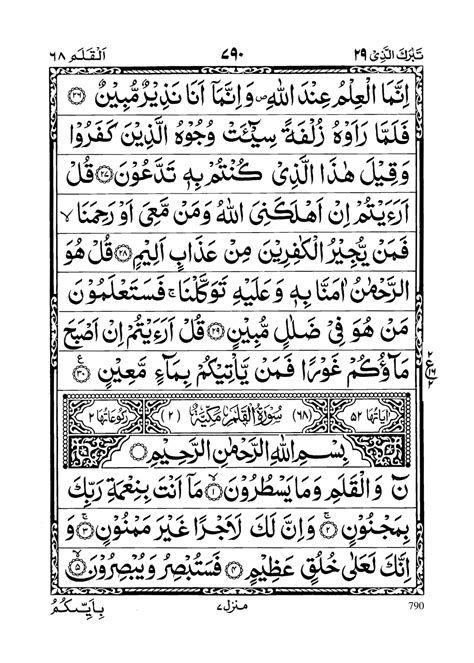 تَبٰرَكَ الَّذِىْ ٢٩ ٧٩٠ اَلْقَلَم ٦٨
اِنَّمَا الْعِلْمُ عِنْدَ اللّٰهِ ۪ وَاِنَّمَاۤ اَنَا نَذِيْرٌ مُّبِيْنٌ ﴿٢٦﴾
فَلَمَّا رَاَوْهُ زُلْفَةً سِيْٓـَٔتْ وُجُوْهُ الَّذِيْنَ كَفَرُوْا
وَقِيْلَ هٰذَا الَّذِىْ كُنْتُمْ بِهٖ تَدَّعُوْنَ ﴿٢٧﴾ قُلْ
اَرَءَيْتُمْ اِنْ اَهْلَكَنِىَ اللّٰهُ وَمَنْ مَّعِىَ اَوْ رَحِمَنَا ۙ
فَمَنْ يُّجِيْرُ الْكٰفِرِيْنَ مِنْ عَذَابٍ اَلِيْمٍ ﴿٢٨﴾ قُلْ هُوَ
الرَّحْمٰنُ اٰمَنَّا بِهٖ وَعَلَيْهِ تَوَكَّلْنَا ۚ فَسَتَعْلَمُوْنَ
مَنْ هُوَ فِىْ ضَلٰلٍ مُّبِيْنٍ ﴿٢٩﴾ قُلْ اَرَءَيْتُمْ اِنْ اَصْبَحَ
مَآؤُكُمْ غَوْرًا فَمَنْ يَّاْتِيْكُمْ بِمَآءٍ مَّعِيْنٍ ﴿٣٠﴾ ٢ ع ١٦ ٢
اٰيَاتُهَا ٥٢ (٦٨) سُوْرَةُ الْقَلَمِ مَكِّيَّةٌ (٢) رُكُوْعَاتُهَا ٢
بِسْمِ اللّٰهِ الرَّحْمٰنِ الرَّحِيْمِ
نٓ وَالْقَلَمِ وَمَا يَسْطُرُوْنَ ۙ ﴿١﴾ مَاۤ اَنْتَ بِنِعْمَةِ رَبِّكَ
بِمَجْنُوْنٍ ۚ ﴿٢﴾ وَاِنَّ لَكَ لَاَجْرًا غَيْرَ مَمْنُوْنٍ ۚ ﴿٣﴾ وَ
اِنَّكَ لَعَلٰى خُلُقٍ عَظِيْمٍ ﴿٤﴾ فَسَتُبْصِرُ وَيُبْصِرُوْنَ ۙ ﴿٥﴾
790 منزل ٧ بِاَيِّىكُمُ